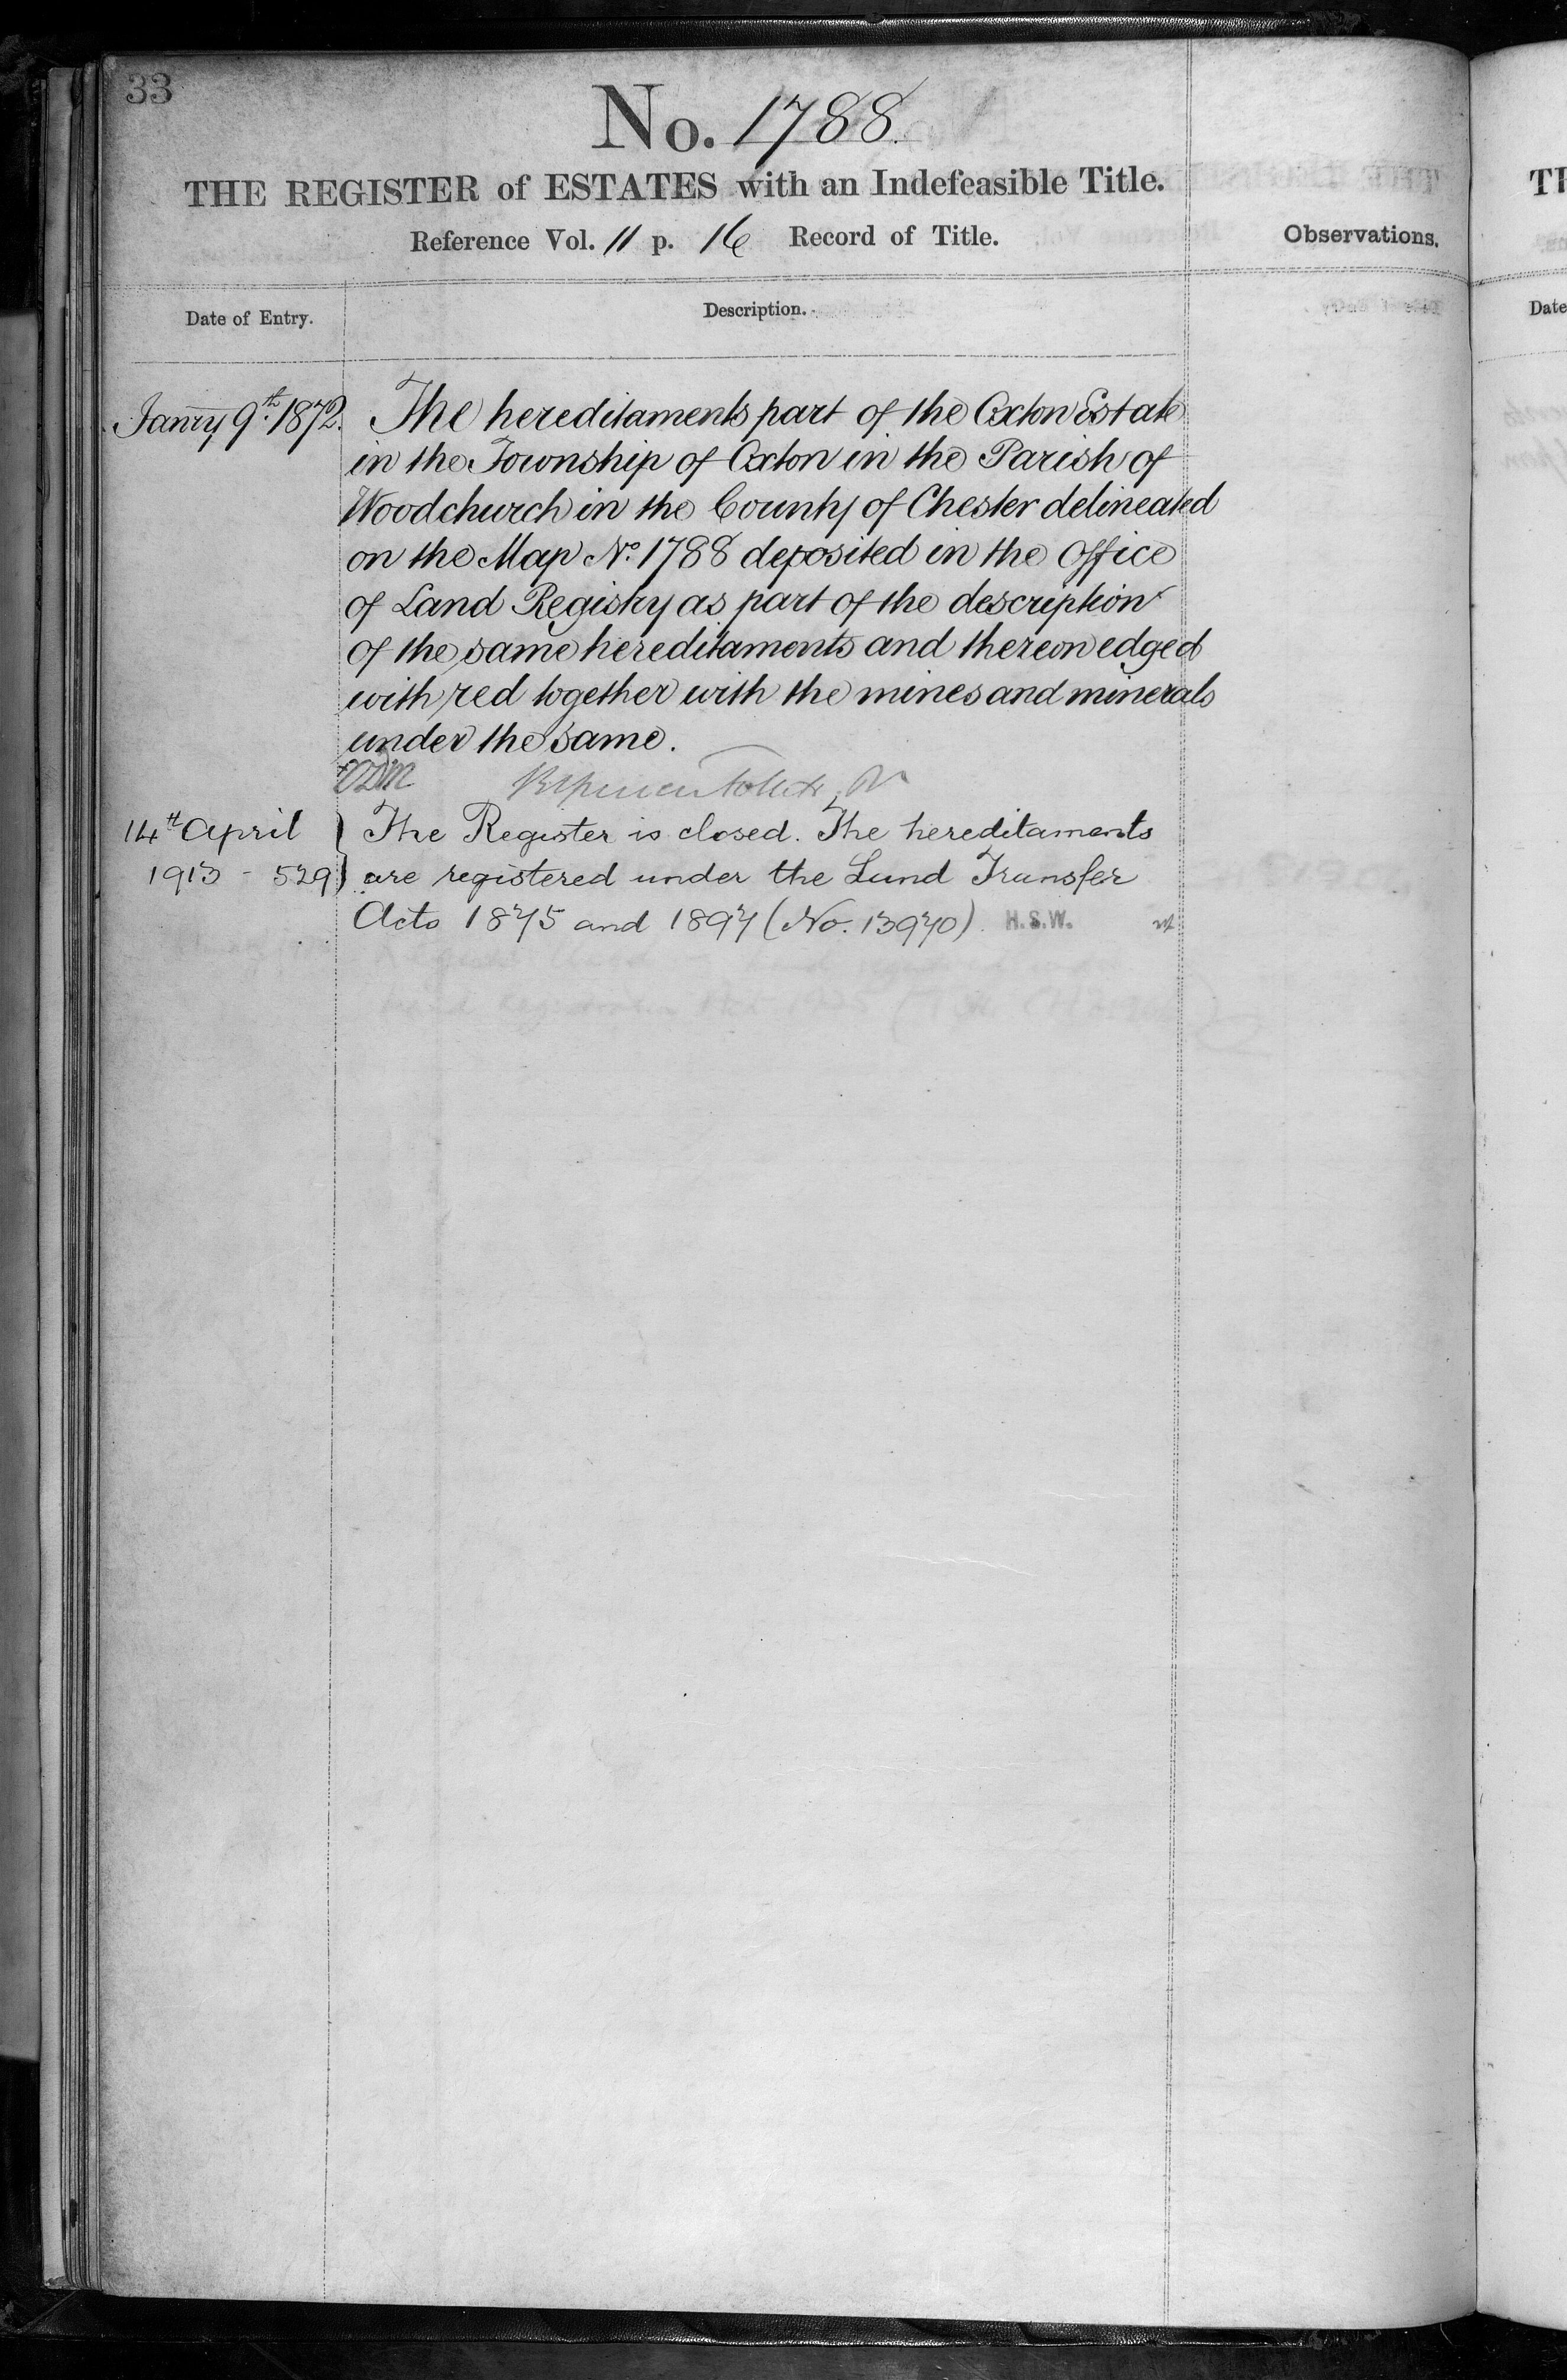 33
No. 1788.
THE REGISTER of ESTATES with an Indefeasible Title.
Reference Vol. 11 p. 16 Record of Title.
Observations.
Date of Entry.
Description.
Janry 9th. 1872. The hereditaments part of the Oxton Estate
in the Township of Oxton in the Parish of
Woodchurch in the County of Chester delineated
on the Map No. 1788 deposited in the Office
of Land Registry as part of the description
of the same hereditaments and thereon edged
with red together with the mines and minerals
under the same.
14th April The Register is closed. The hereditaments
1913 - 529 are registered under the Land Transfer
Acts 1875 and 1897 (No. 13970). H.S.W.
Date